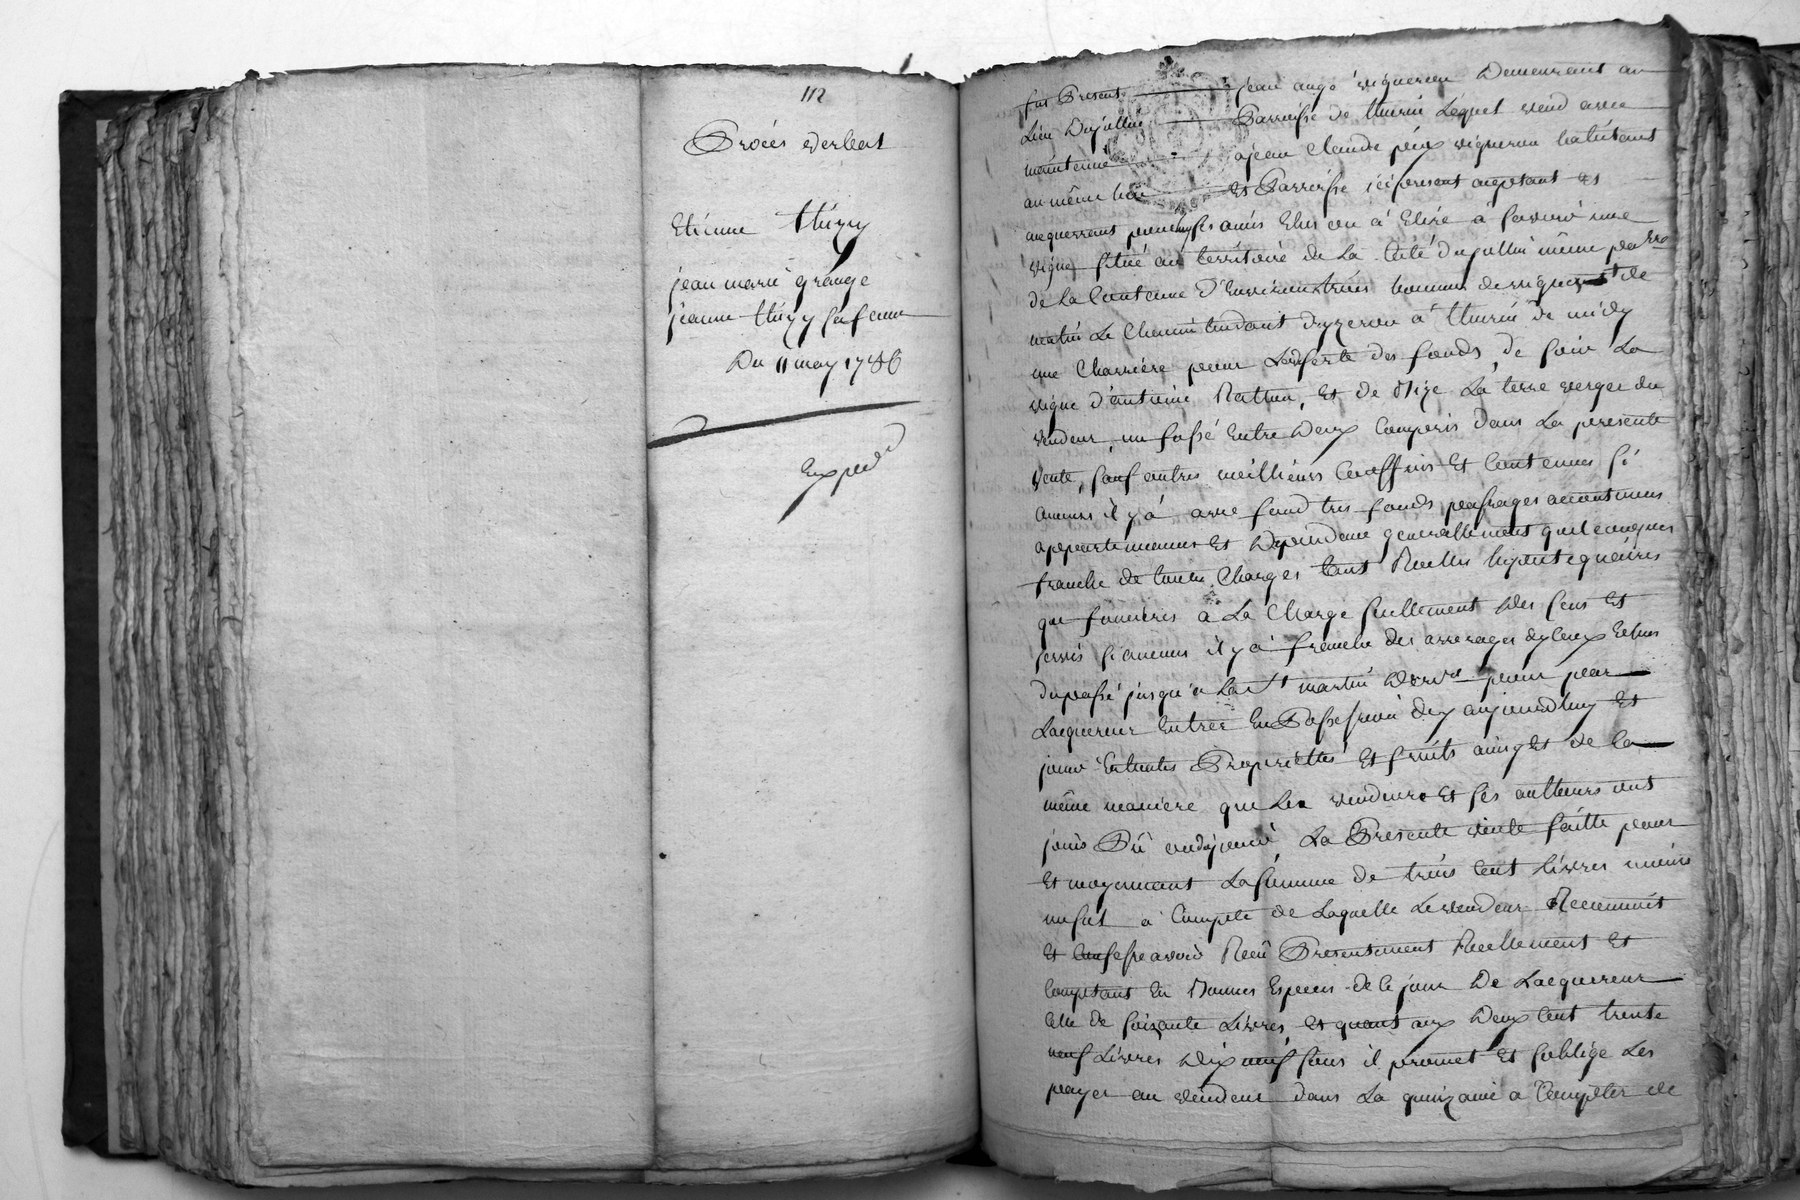 112
Procès verbal
Etienne thizy
jean marie grange
jeanne thizy sa femme
Du 11 may 1786
Expedié
fut Present jean augé vigneron Demeurant au
Lieu Dujullin Parroisse de thurin Lequel vend avec
maintenüe a jean Claude piey vigneron habitant
au même lieu et Parroisse ici present aceptant et
acquerrant pour luy ses amis Elus ou à Elire à savoir une
vigne situé au territoire de La Coté Dujullin même par
de La Contenue D'Environ trois hommes de vigne de
matin Le Chemin tendant Dyzeron à thurin de midy
une Charriere pour Ladserte des fonds, de soir La
vigne d'antoine Rathon, Et de Bize La terre verger du
vendeur un fossé Entre Deux Compris Dans La presente
vente, sauf autres meilleurs Conffins Et Contenues si
aucuns il y à avec fond tres fonds passages accoutumes
appartenances Et Dependance generallement quelconques
franche de toutes Charges tant Reelles hypotequaires
que foncieres à La Charge seullement Des Cens Et
servis si aucuns il y à franche des arrerages dyceux Echus
Du passé jusqu'a La St martin Derre pour par
Lacquereur Entrer En Possession dez aujourdhuy Et
jouir En toutes Proprietés Et fruits ainsy Et de la
même maniere que Le vendeur Et ses autheurs ont
jouis Pû ou dû jouir, La Presente vente faitte pour
Et moyennant La somme de trois Cent Livres moins
un sol à Compte de Laquelle Le vendeur Reconnoit
Et Confesse avoir Reçû Presentement Reellement Et
Comptant En Bonnes Especes de Ce jour De Lacquereur
Celle de soixante Livres Et quant aux Deux Cent trente
neuf Livres Dix neuf sous il promet Et soblige Les
payer au vendeur dans La quinzaine a Compter de